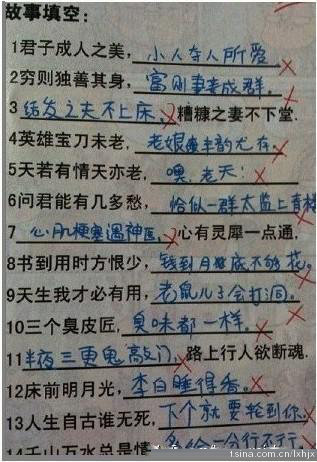 故事填空：
1君子成人之美，小人夺人所爱
2穷则独善其身，富则妻妾成群。
3结发之夫不上床，糟糠之妻不下堂.
4英雄宝刀未老，老娘风韵尤存。
5天若有情天亦老，噢，老天！
6问君能有几多愁，恰似一群太监上青楼
7心肌梗塞遇神医，心有灵犀一点通，
8书到用时方恨少，钱到月底不够花。
9天生我才必有用，老鼠儿子会打洞。
10三个臭皮匠，臭味都一样。
11半夜三更鬼敲门，路上行人欲断魂.
12床前明月光，李白睡得香。
13人生自古谁无死，下个就要轮到你.
14千山万水总是情，多给一分行不行.
tsina.com.cn/lxhjx